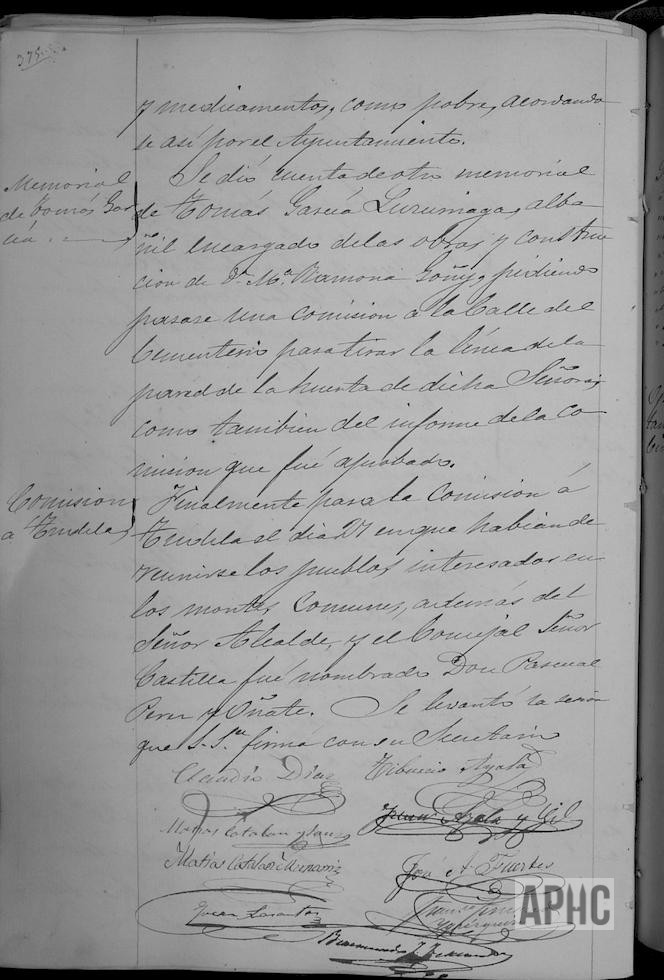 375
y medicamentos, como pobre, acordando
se así por el Ayuntamiento.
Memorial
de Tomás Gar
cia.
Se dió cuenta de otro memorial
de Tomás García Luzuriaga, alba
ñil encargado de las obras y construc
cion de Dª Mª Ramona Goñi, pidiendo
pasase una comision a la Calle del
Cementerio para tirar la línea de la
pared de la huerta de dicha Señora,
como tambien del informe de la co
mision que fué aprobado.
Comision
a Tudela
Finalmente para la comisión á
Tudela el dia 27 en que habían de
reunirse los pueblos interesados en
los montes Comunes, además del
Señor Alcalde, y el Concejal Señor
Castilla fué nombrado Don Pascual
Perez y Oñate. Se levantó la sesion
que S. Sª firma con su Secretario
Claudio Diaz
Tiburcio Ayala
Juan Ayala y Gil
Matias Catalan
José A. Fuertes
Juan
APHC